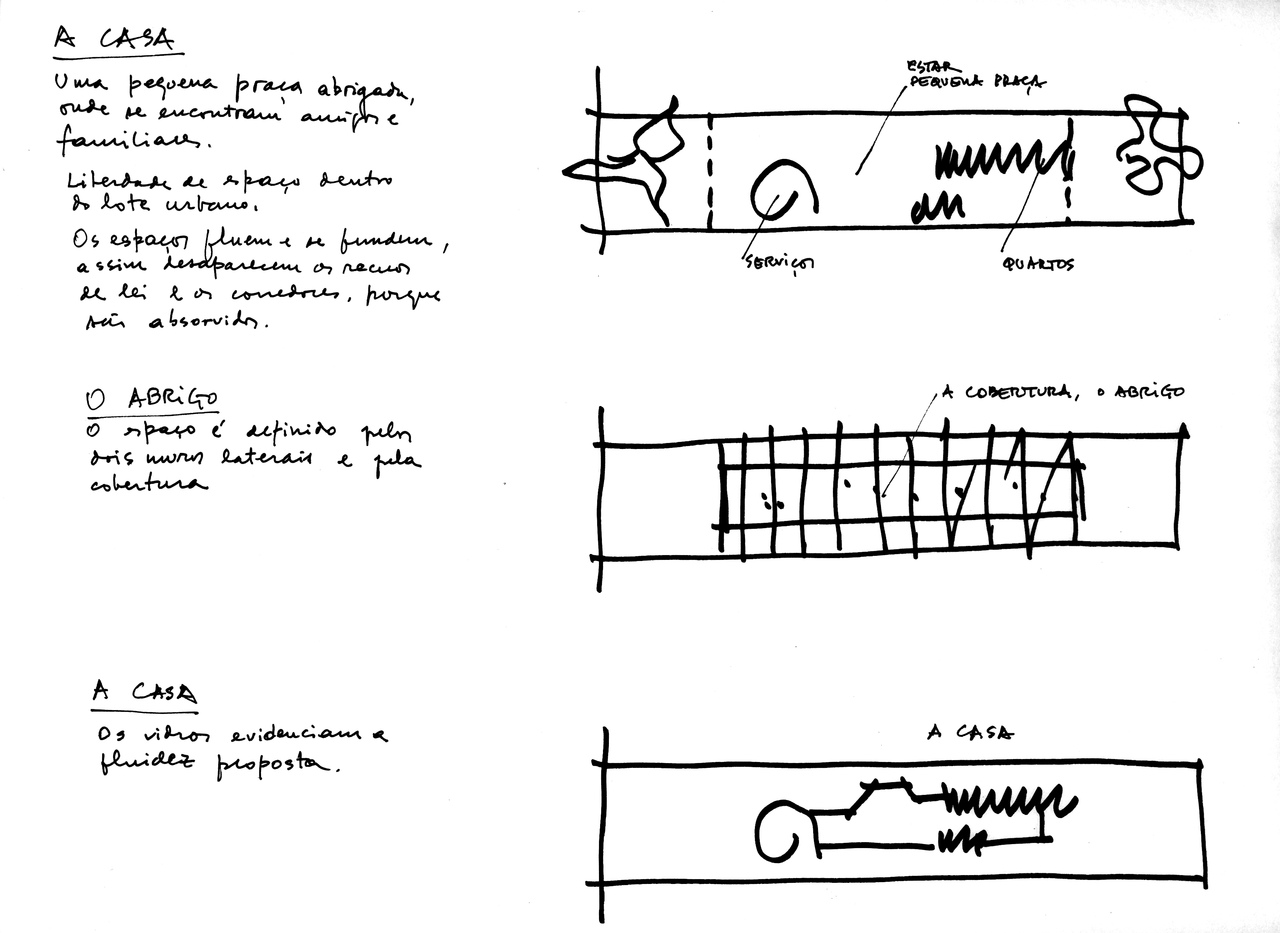 A CASA
Uma pequena praça abrigada,
onde se encontram amigos e
familiares.
Liberdade de espaço dentro
do lote urbano.
Os espaços fluem e se fundem,
assim desaparecem os recuos
de lei e os corredores, porque
são absorvidos.
ESTAR
PEQUENA PRAÇA
SERVIÇOS
QUARTOS
O ABRIGO
O espaço é definido pelos
dois muros laterais e pela
cobertura
A COBERTURA, O ABRIGO
A CASA
Os vidros evidenciam a
fluidez proposta.
A CASA